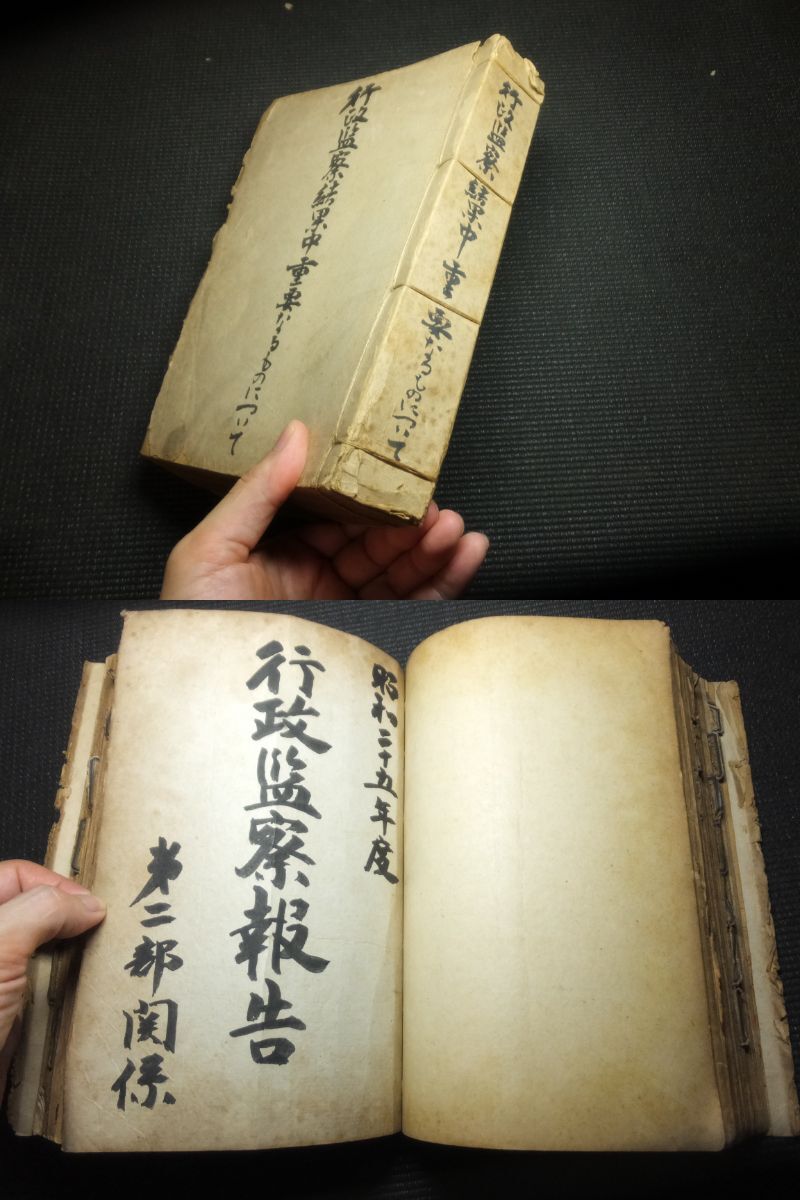 行政監察結果中重要なるものについて
行政監察結果中重要なるものについて
昭和二十五年度
行政監察報告
第二部関係